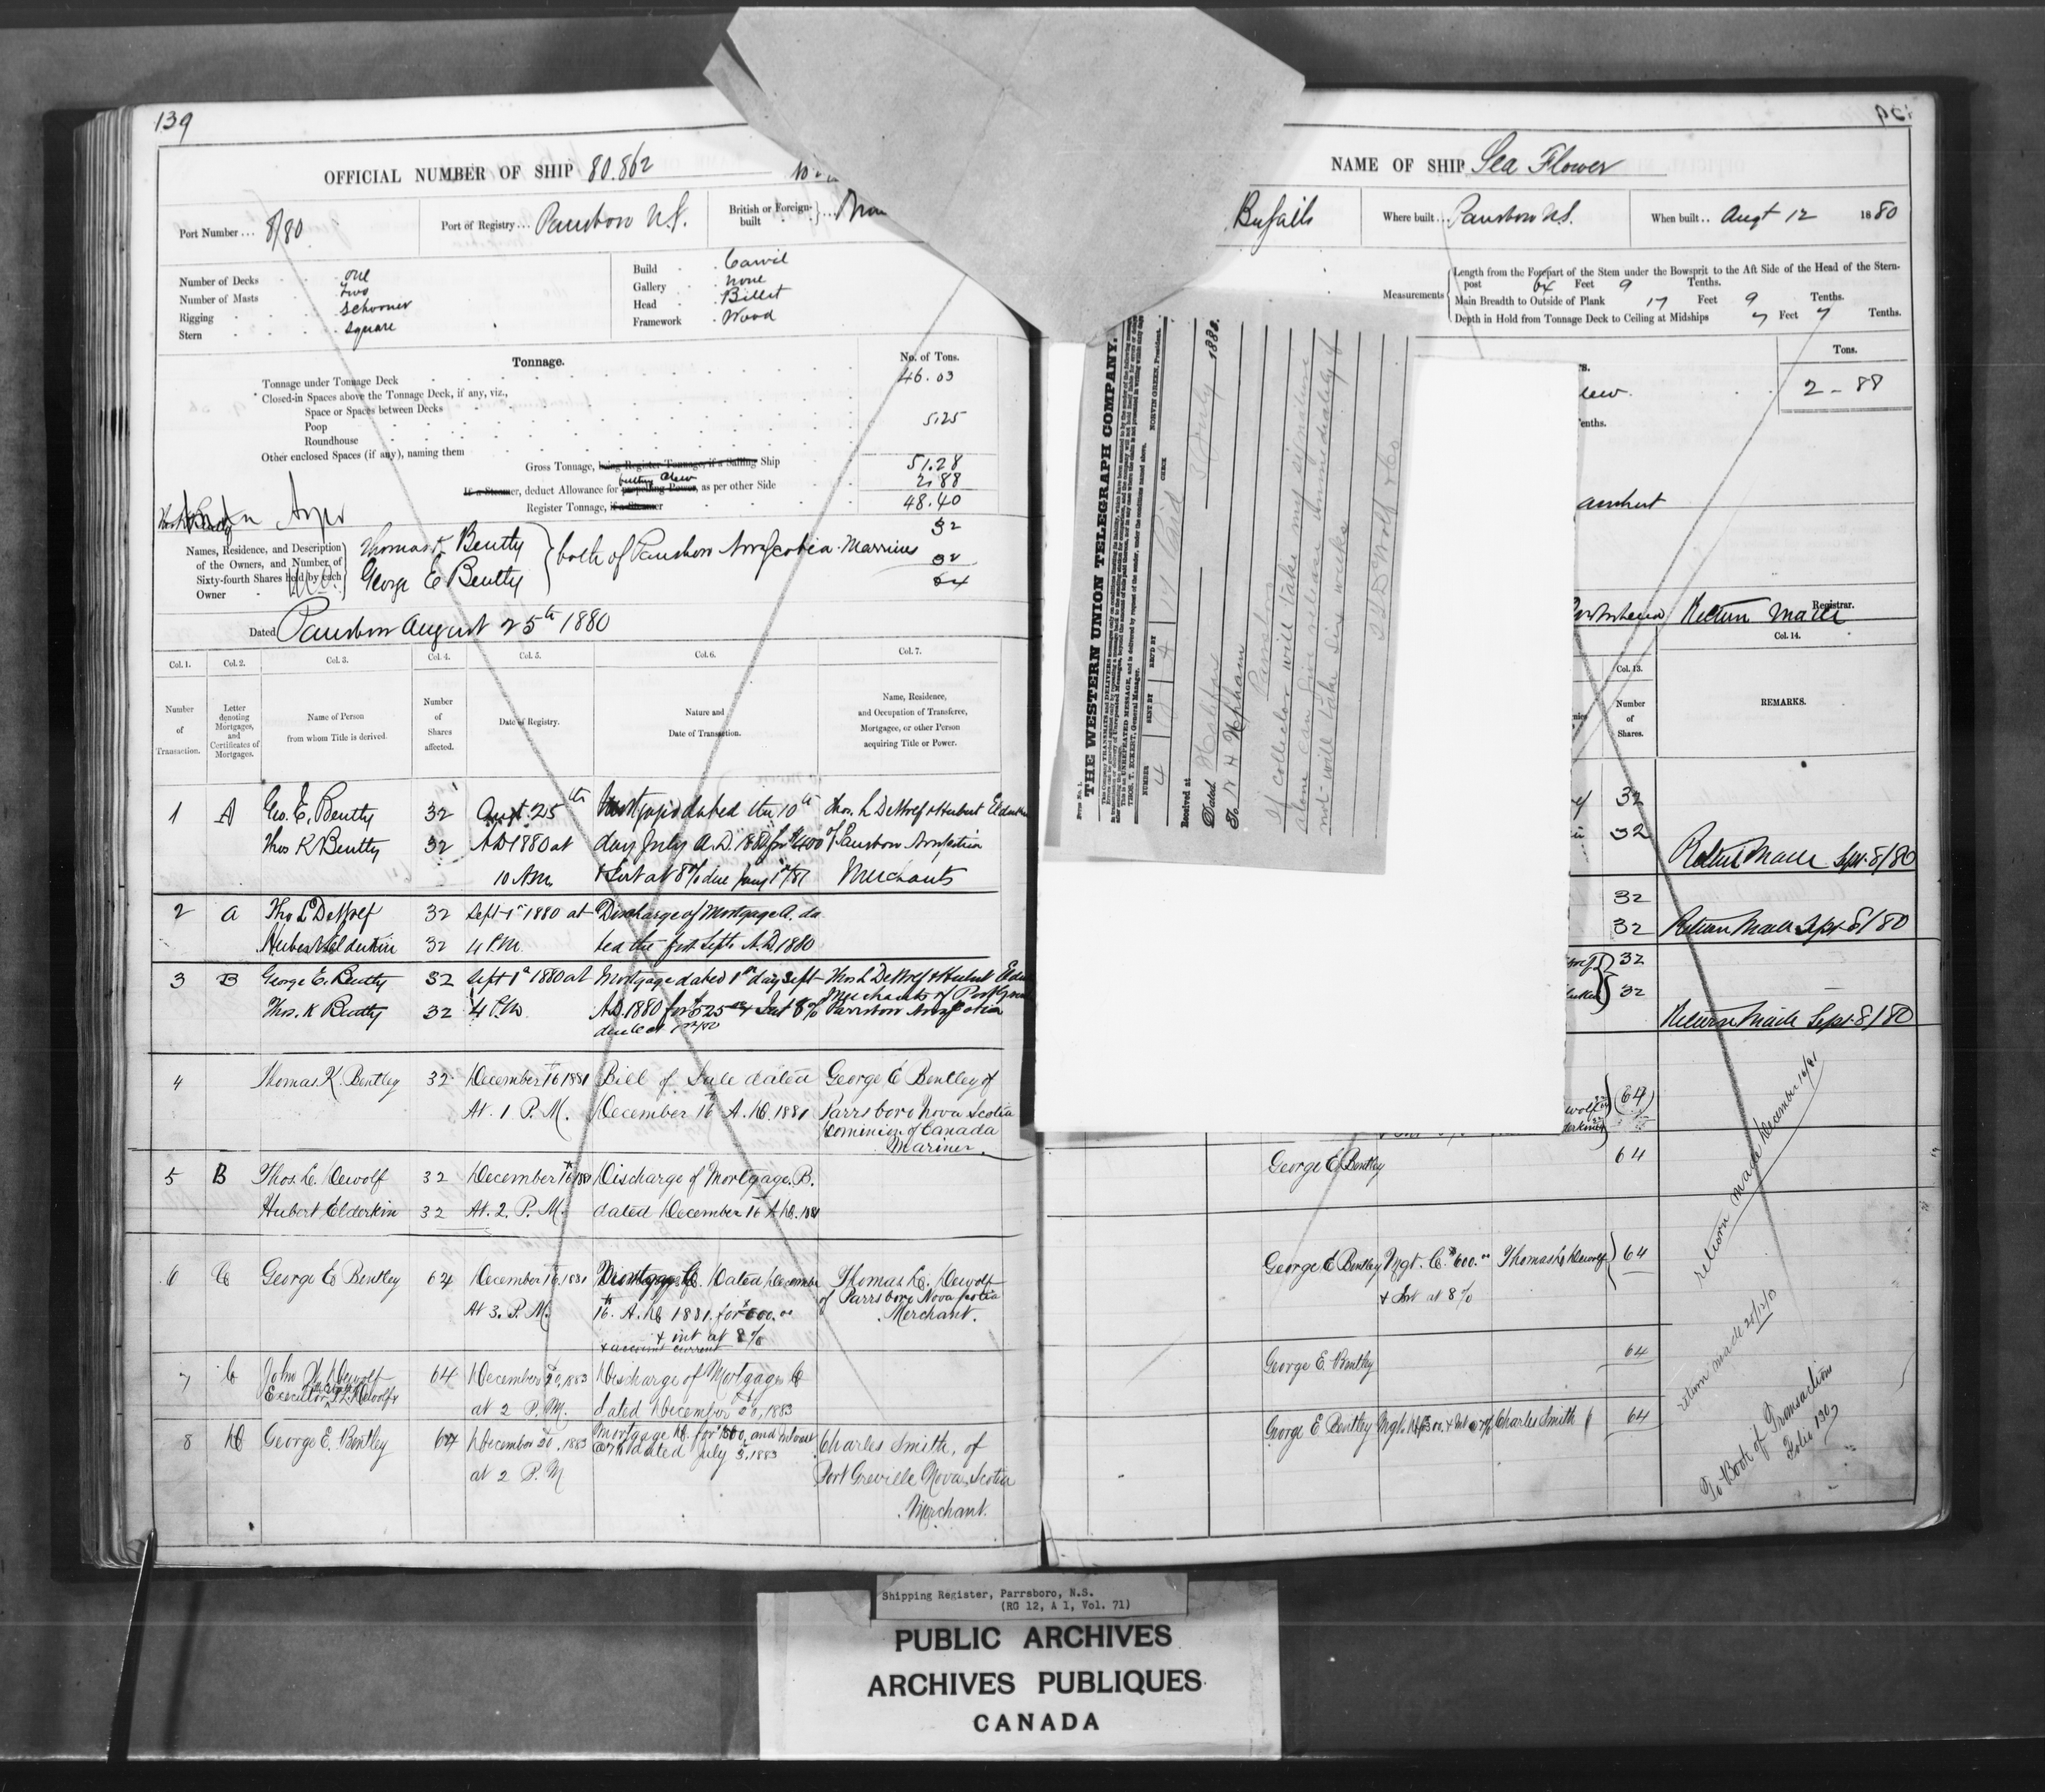 139
OFFICIAL NUMBER OF SHIP 80.862
Port Number ... 8/80
Port of Registry ... Parrsboro N.S.
British or Foreign-built
Number of Decks one
Number of Masts Two
Rigging Schooner
Stern Square
Build Carvil
Gallery none
Head Billet
Framework Wood
Tonnage.
No. of Tons.
Tonnage under Tonnage Deck 46.03
Closed-in Spaces above the Tonnage Deck, if any, viz.,
Space or Spaces between Decks
Poop 5.25
Roundhouse
Other enclosed Spaces (if any), naming them
Gross Tonnage, being Register Tonnage, if a Sailing Ship 51.28
If a Steamer, deduct Allowance for propelling Power, as per other Side 2.88
Register Tonnage, if a Steamer 48.40
Names, Residence, and Description of the Owners, and Number of Sixty-fourth Shares held by each Owner
Thomas K Bentley 32
George E Bentley 32
both of Parrsboro Nova Scotia Marriners
64
Dated Parrsboro August 25th 1880
Col. 1. Col. 2. Col. 3. Col. 4. Col. 5. Col. 6. Col. 7.
Number of Transaction.
Letter denoting Mortgages, and Certificates of Mortgages.
Name of Person from whom Title is derived.
Number of Shares affected.
Date of Registry.
Nature and Date of Transaction.
Name, Residence, and Occupation of Transferee, Mortgagee, or other Person acquiring Title or Power.
1 A Geo. E. Bentley 32 Augt. 25th dated the 10th Thos. L DeWolf & Hubert Elderkin
Thos K Bentley 32 A.D 1880 at day July A.D. 1880 for $400 of Parrsboro Nova Scotia
10 A.M. & Int at 8% due Merchants
2 A Thos L DeWolf 32 Sept 1st 1880 at Discharge of Mortgage A. da
Hubert Elderkin 32 4 P.M. ted the first Sept. A.D. 1880
3 B George E. Bentley 32 Sept 1st 1880 at Mortgage dated 1st day Sept Thos L DeWolf & Hubert
Thos. K Bentley 32 4 P.M. A.D. 1880 for $525 & Int 8% Merchants of Parrsboro Nova Scotia
4 Thomas K. Bentley 32 December 16 1881 Bill of Sale dated George E Bentley of
At. 1 P. M. December 16th A. D. 1881 Parrsboro Nova Scotia
Dominion of Canada
Mariner.
5 B Thos. L. Dewolf 32 December 16th 1881 Discharge of Mortgage. B.
Hubert Elderkin 32 At. 2. P. M. dated December 16 A. D. 1881
6 C George E Bentley 64 December 16, 1881 Mortgage C. Dated December Thomas L. Dewolf
At 3. P. M. 16th. A. D 1881. for $600.00 of Parrsboro Nova Scotia
& int at 8% Merchant.
& account current
7 C John Dewolf 64 December 20, 1883 Discharge of Mortgage C
Executor at 2 P. M. dated December 20, 1883
8 D George E. Bentley 64 December 20, 1883 Mortgage D. for and interest Charles Smith, of
at 2 P. M dated July 3. 1883 Port Greville Nova Scotia
Merchant.
NAME OF SHIP Sea Flower
Where built ... Parrsboro N.S.
When built .. Augt 12 1880
Measurements
Length from the Forepart of the Stem under the Bowsprit to the Aft Side of the Head of the Stern-post 64 Feet 9 Tenths.
Main Breadth to Outside of Plank 17 Feet 9 Tenths.
Depth in Hold from Tonnage Deck to Ceiling at Midships 7 Feet 7 Tenths.
Tons.
2 - 88
Registrar.
Return Made
Col. 13. Col. 14.
Number of Shares.
REMARKS.
32
32 Return Made Sept. 8/80
32
32 Return Made Sept. 8/80
32
32 Return Made Sept. 8/80
(64)
George E Bentley 64
return made December 16/81
George E Bentley Mgt. C. $600.00 Thomas L Dewolf 64
& Int at 8%
George E. Bentley 64
return made 20/12/83
George E Bentley Charles Smith 64
To Book of Transactions
Folio 130
THE WESTERN UNION TELEGRAPH COMPANY.
THOS. T. ECKERT, General Manager. NORVIN GREEN, President.
NUMBER SENT BY REC'D BY CHECK
Received at
3 July 1883.
Dated
To D H Upham
Parrsboro
If collector will take my signature
alone can give release immediately if
not will take six weeks
Shipping Register, Parrsboro, N.S.
(RG 12, A 1, Vol. 71)
PUBLIC ARCHIVES
ARCHIVES PUBLIQUES
CANADA